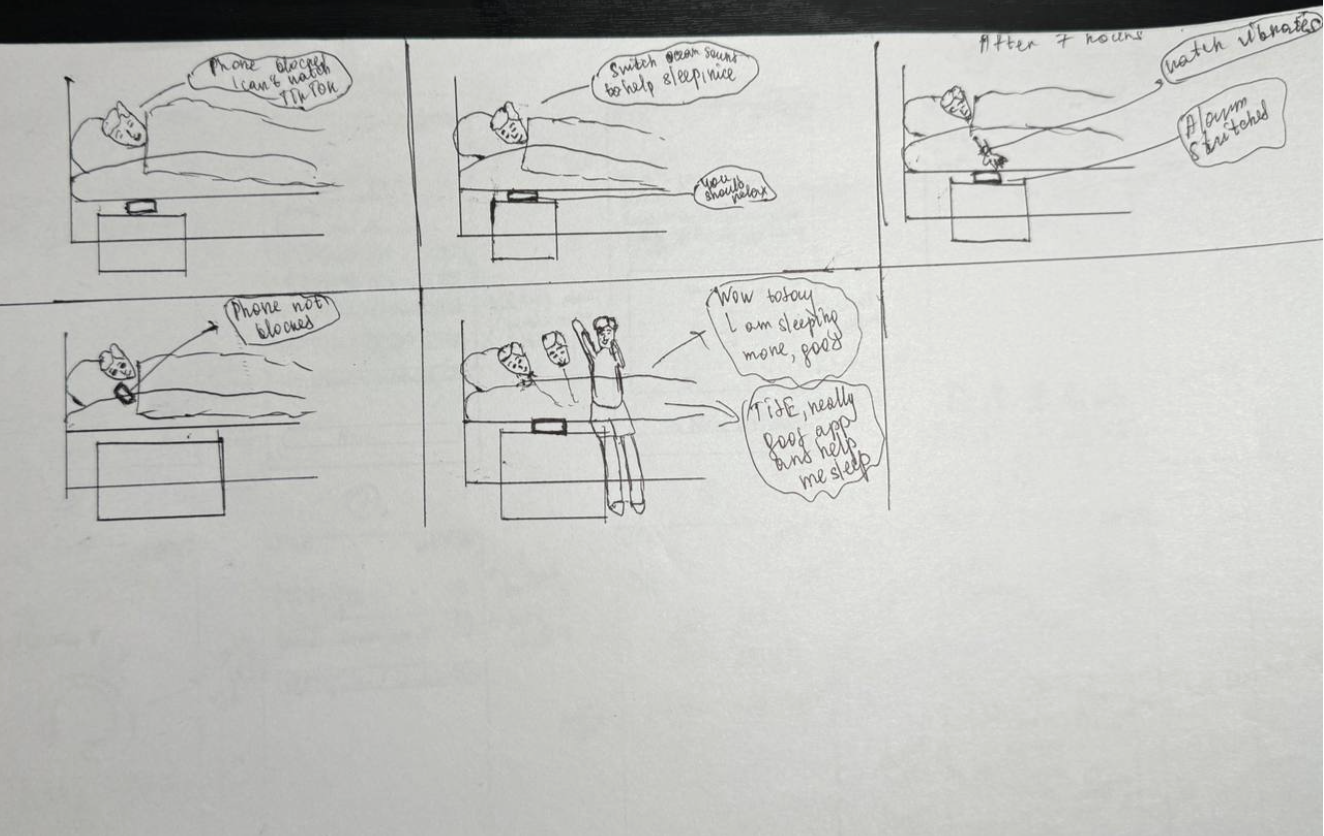 Phone blocked
I can't watch
TikTok
Switch ocean sound
to help sleep, nice
you
should
relax
After 7 hours
watch vibrates
Alarm
switches
Phone not
blocked
Wow today
I am sleeping
more, good
really
good app
and help
me sleep